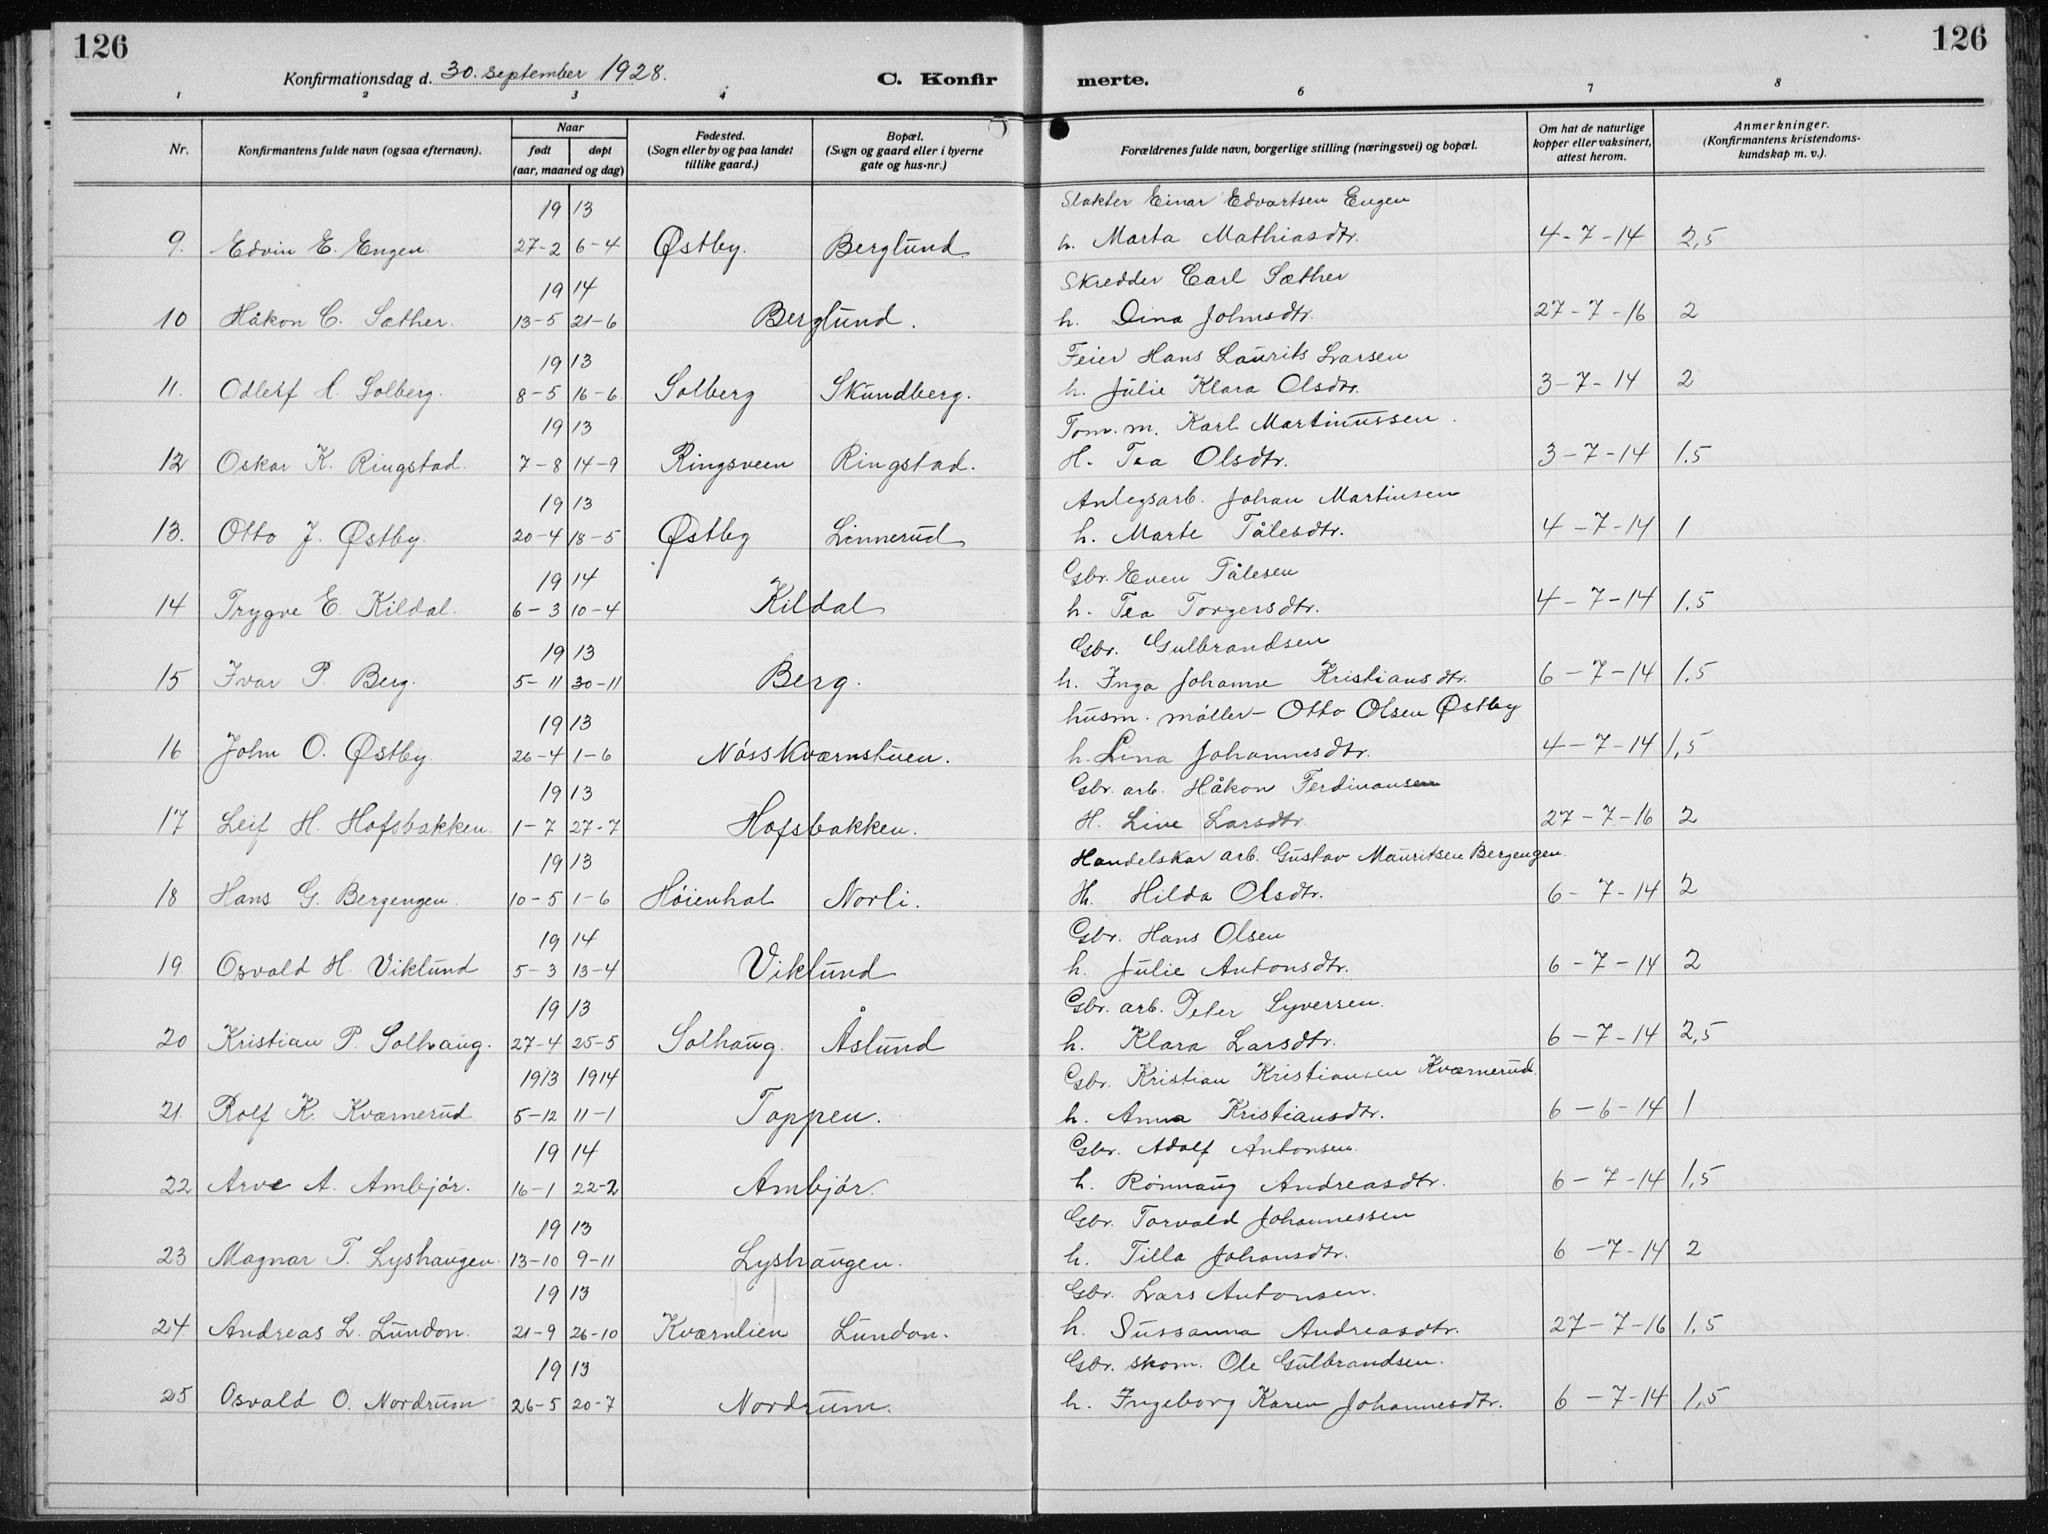 126
126
Konfirmationsdag d. 30. september 1928.
C. Konfir merte.
1 2 3 4 6 7 8
Nr.
Konfirmantens fulde navn (ogsaa efternavn).
Naar
født døpt
(aar, maaned og dag)
Fødested.
(Sogn eller by og paa landet
tillike gaard.)
Bopæl.
(Sogn og gaard eller i byerne
gate og hus-nr.)
Forældrenes fulde navn, borgerlige stilling (næringsvei) og bopæl.
Om hat de naturlige
kopper eller vaksinert,
attest herom.
Anmerkninger.
(Konfirmantens kristendoms-
kundskap m. v.).
19 13 Slakter Einar Edvartsen Engen
9. Edvin E. Engen. 27-2 6-4 Østby. Berglund h. Marta Mathiasdtr. 4-7-14 2,5
19 14 Skredder Carl Sæther
10 Håkon C. Sæther. 13-5 21-6 Berglund. h. Dina Johnsdtr. 27-7-16 2
19 13 Feier Hans Laurits Larsen
11. Odleif H. Solberg. 8-5 16-6 Solberg Skundberg. h. Julie Klara Olsdtr. 3-7-14 2
19 13 Tom. m. Karl Martinussen.
12 Oskar K. Ringstad. 7-8 14-9 Ringsveen Ringstad. H. Tea Olsdtr. 3-7-14 1.5
19 13 Anlegsarb. Johan Martinsen
13. Otto J. Østby. 20-4 18-5 Østby Linnerud h. Marte Tålesdtr. 4-7-14 1
19 14 Gbr. Even Tålesen
14 Trygve E. Kildal. 6-3 10-4 Kildal h. Tea Torgersdtr. 4-7-14 1.5
19 13 Gbr. Gulbrandsen
15 Ivar P. Berg. 5-11 30-11 Berg. h. Inga Johanne Kristiansdtr. 6-7-14 1.5
19 13 husm. møller- Otto Olsen Østby
16 John O. Østby. 26-4 1-6 Nøss Kværnstuen. h. Lina Johannesdtr. 4-7-14 1,5
19 13 Gbr. arb. Håkon Ferdinansen
17 Leif H. Hofsbakken. 1-7 27-7 Hofsbakken. H. Live Larsdtr. 27-7-16 2
19 13 Handelskar arb. Gustav Mauritsen Bergengen.
18 Hans G. Bergengen. 10-5 1-6 Høienhal Norli. H. Hilda Olsdtr. 6-7-14 2
19 14 Gbr. Hans Olsen
19 Osvald H. Viklund 5-3 13-4 Viklund h. Julie Antonsdtr. 6-7-14 2
19 13 Gbr. arb. Peter Syversen.
20 Kristian P. Solhaug. 27-4 25-5 Solhaug. Åslund h. Klara Larsdtr. 6-7-14 2,5
1913 1914 Gbr. Kristian Kristiansen Kværnerud.
21. Rolf K. Kværnerud 5-12 11-1 Toppen. h. Anna Kristiansdtr. 6-6-14 1
19 14 Gbr. Adolf Antonsen.
22 Arve A. Ambjør. 16-1 22-2 Ambjør. h. Rønnaug Andreasdtr. 6-7-14 1,5
19 13 Gbr. Torvald Johannessen
23 Magnar T. Lyshaugen. 13-10 9-11 Lyshaugen. h. Tilla Johansdtr. 6-7-14 2
19 13 Gbr. Lars Antonsen.
24 Andreas L. Lundon. 21-9 26-10 Kværnlien Lundon. h. Sussanna Andreasdtr. 27-7-16 1,5
19 13 Gbr. skom. Ole Gulbrandsen.
25 Osvald O. Nordrum 26-5 20-7 Nordrum. h. Ingeborg Karen Johannesdtr. 6-7-14 1,5